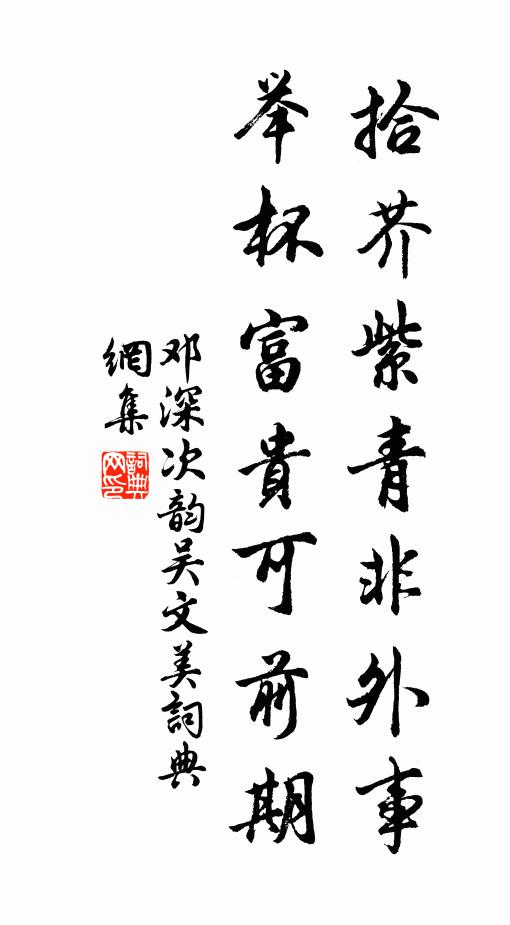 拾芥紫青非外事
举杯富貴可前期
邓深次韵吴文美詞典
網集
詞典网印